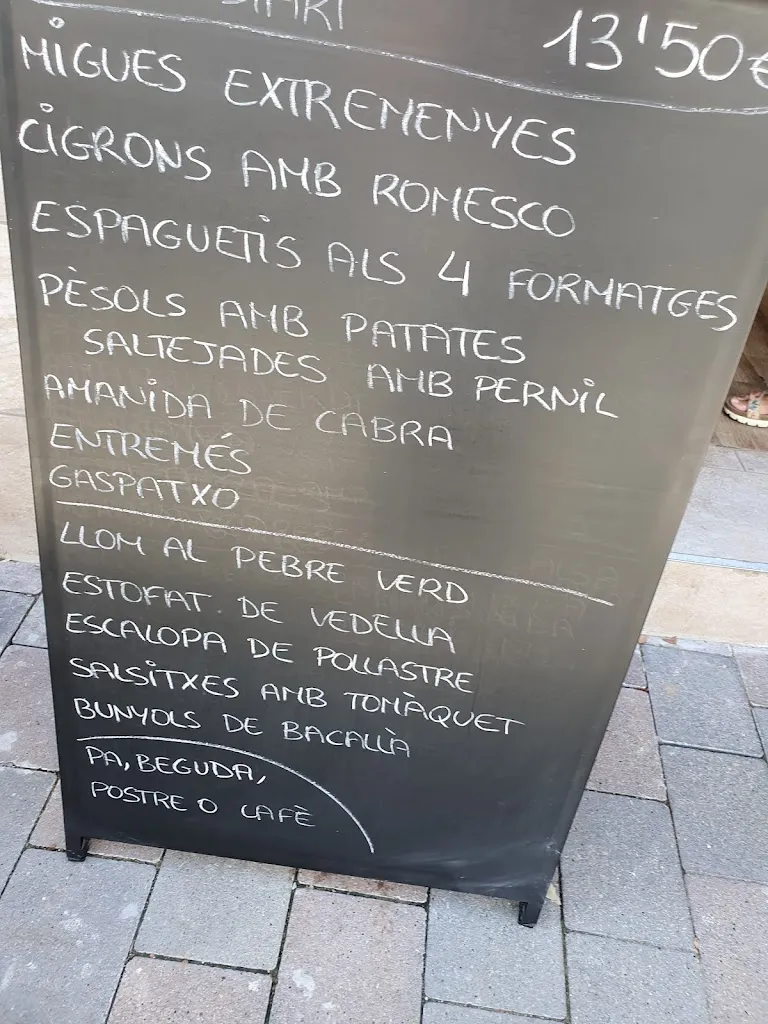 13'50€
MIGUES EXTREMENYES
CIGRONS AMB ROMESCO
ESPAGUETIS ALS 4 FORMATGES
PÈSOLS AMB PATATES
SALTEJADES AMB PERNIL
AMANIDA DE CABRA
ENTREMÉS
GASPATXO
LLOM AL PEBRE VERD
ESTOFAT DE VEDELLA
ESCALOPA DE POLLASTRE
SALSITXES AMB TOMÀQUET
BUNYOLS DE BACALLÀ
PA, BEGUDA,
POSTRE O CAFÈ